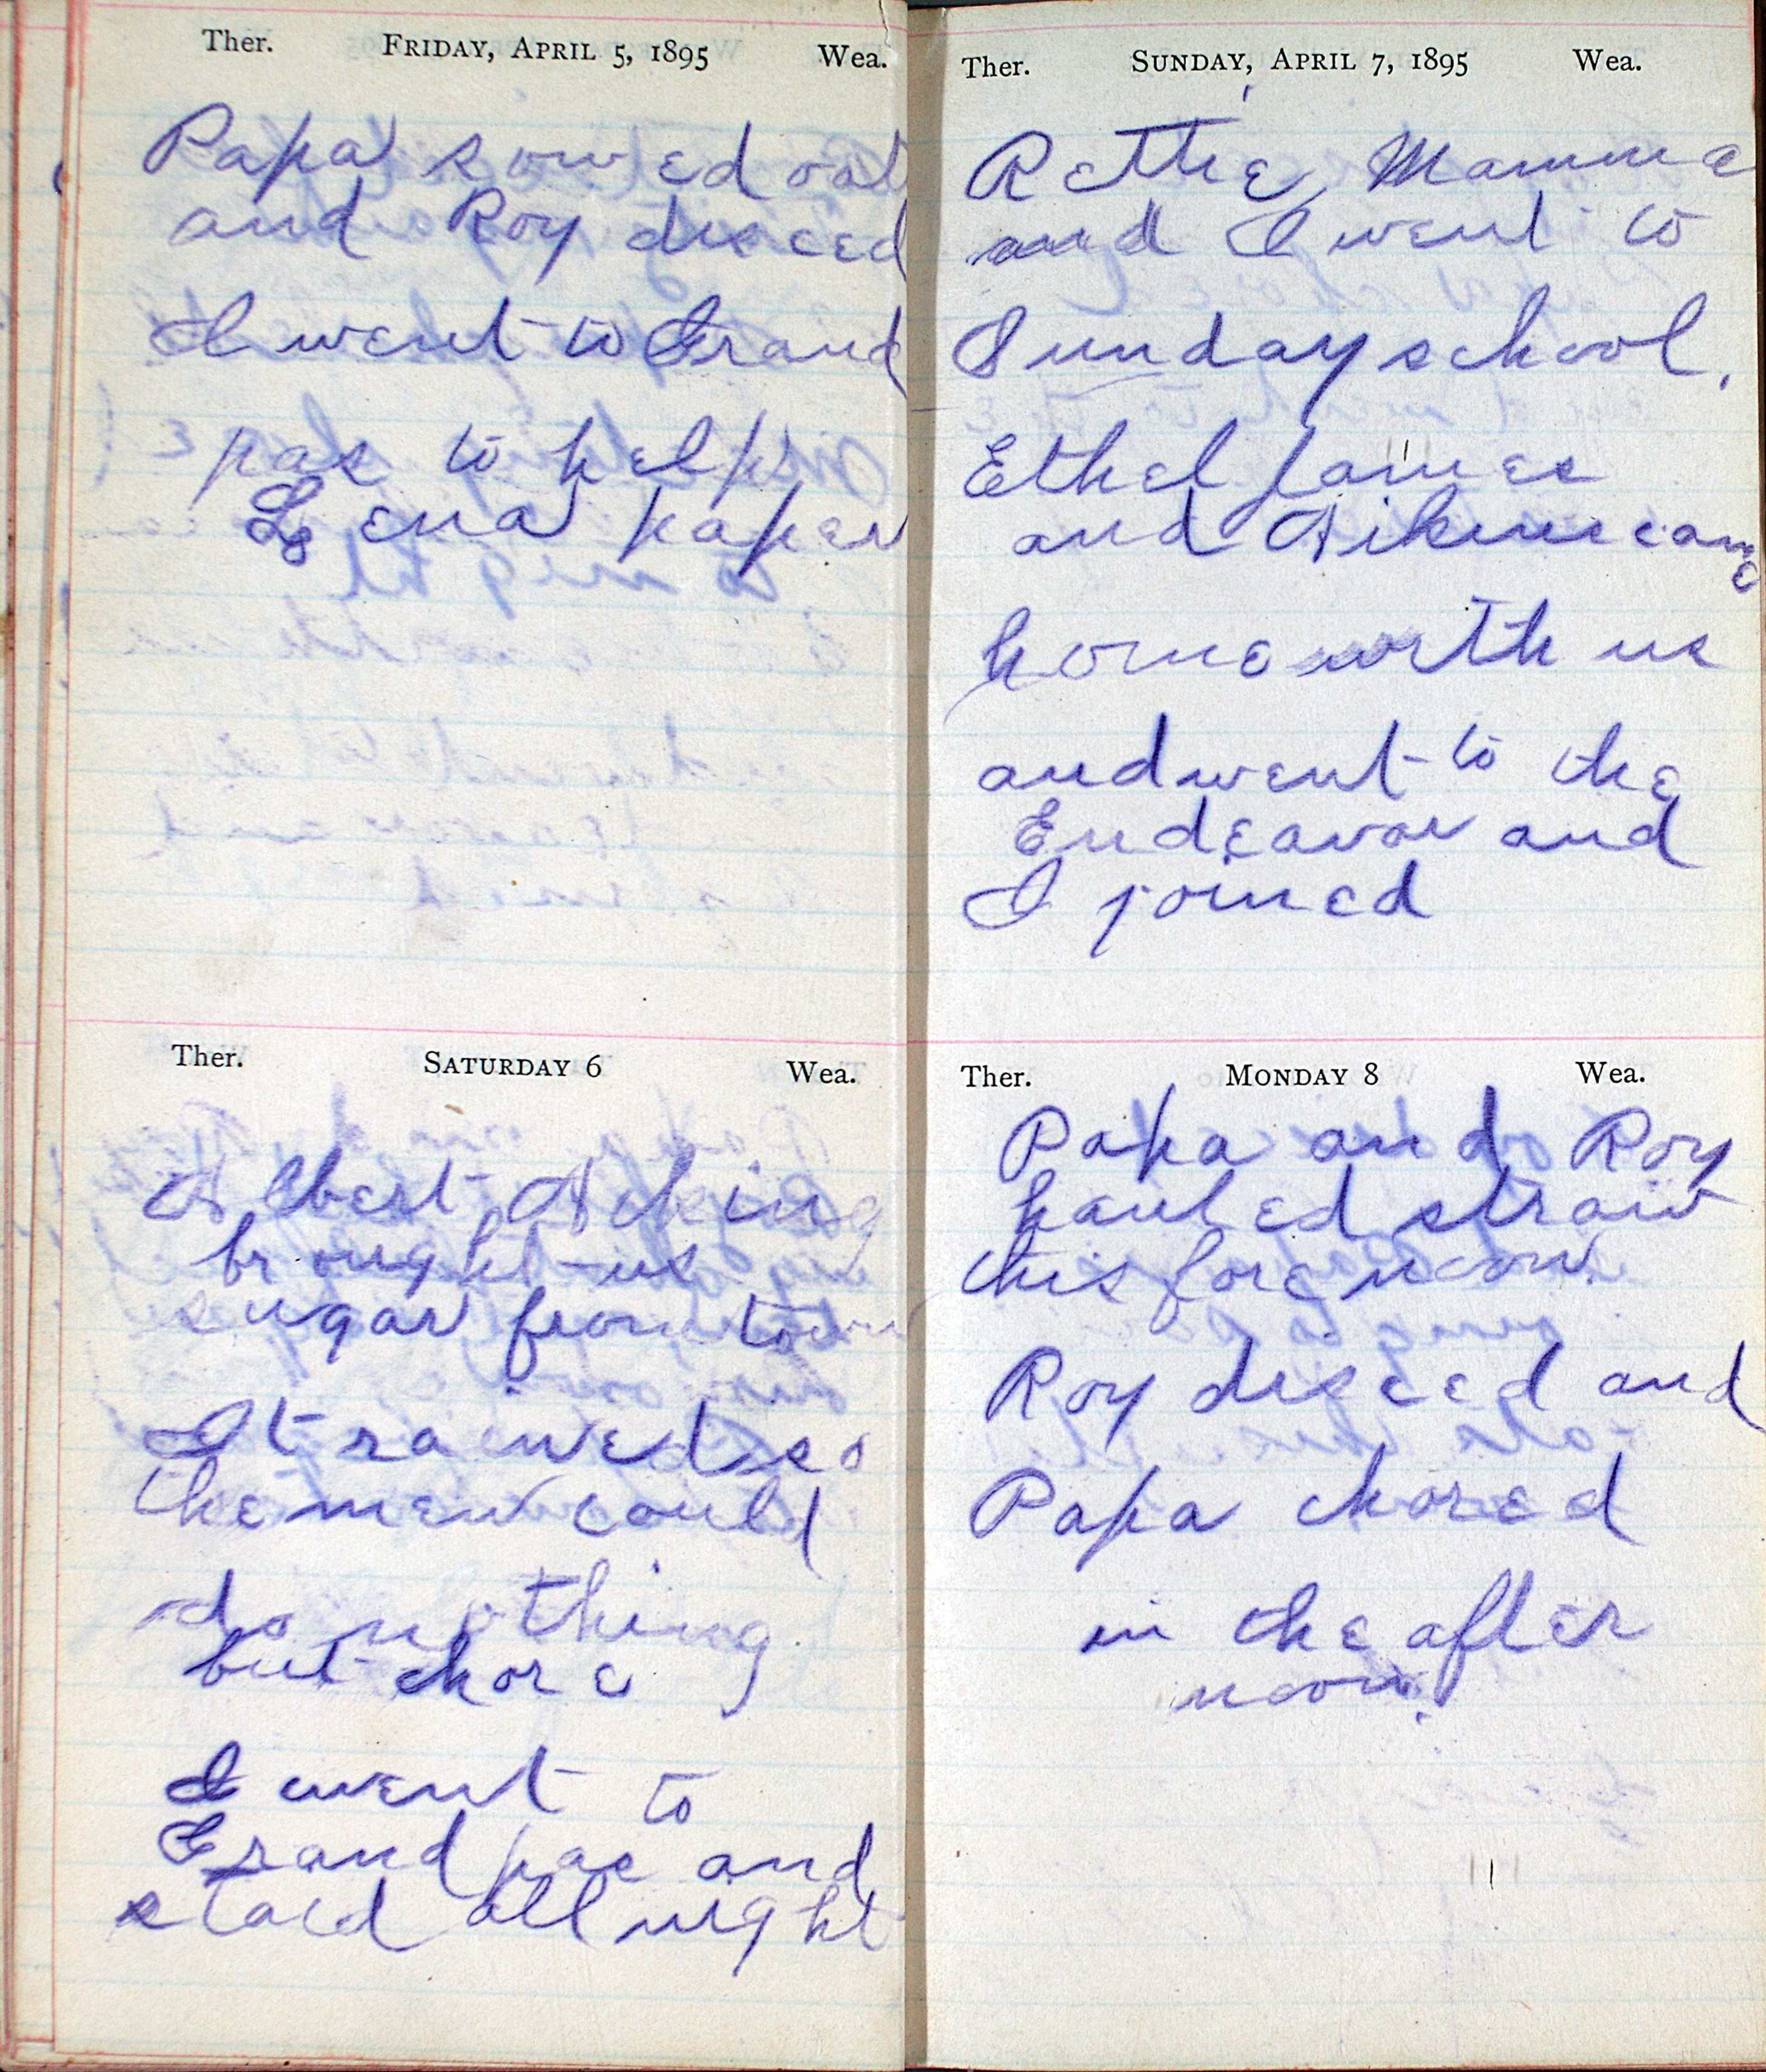 Ther. FRIDAY, APRIL 5, 1895 Wea.
Papa sowed oat
and Roy disced
I went to Grand
pas to help
Lena paper
Ther. SATURDAY 6 Wea.
Albert
brought us
sugar from town
It rained so
the men could
do nothing
but chore
I went to
Grand pas and
staid all night
Ther. SUNDAY, APRIL 7, 1895 Wea.
Rettie, Mamma
and I went to
Sunday school.
Ethel James
and came
home with us
and went to the
Endeavor and
I joined
Ther. MONDAY 8 Wea.
Papa and Roy
hauled straw
this forenoon.
Roy disced and
Papa chored
in the after
noon.